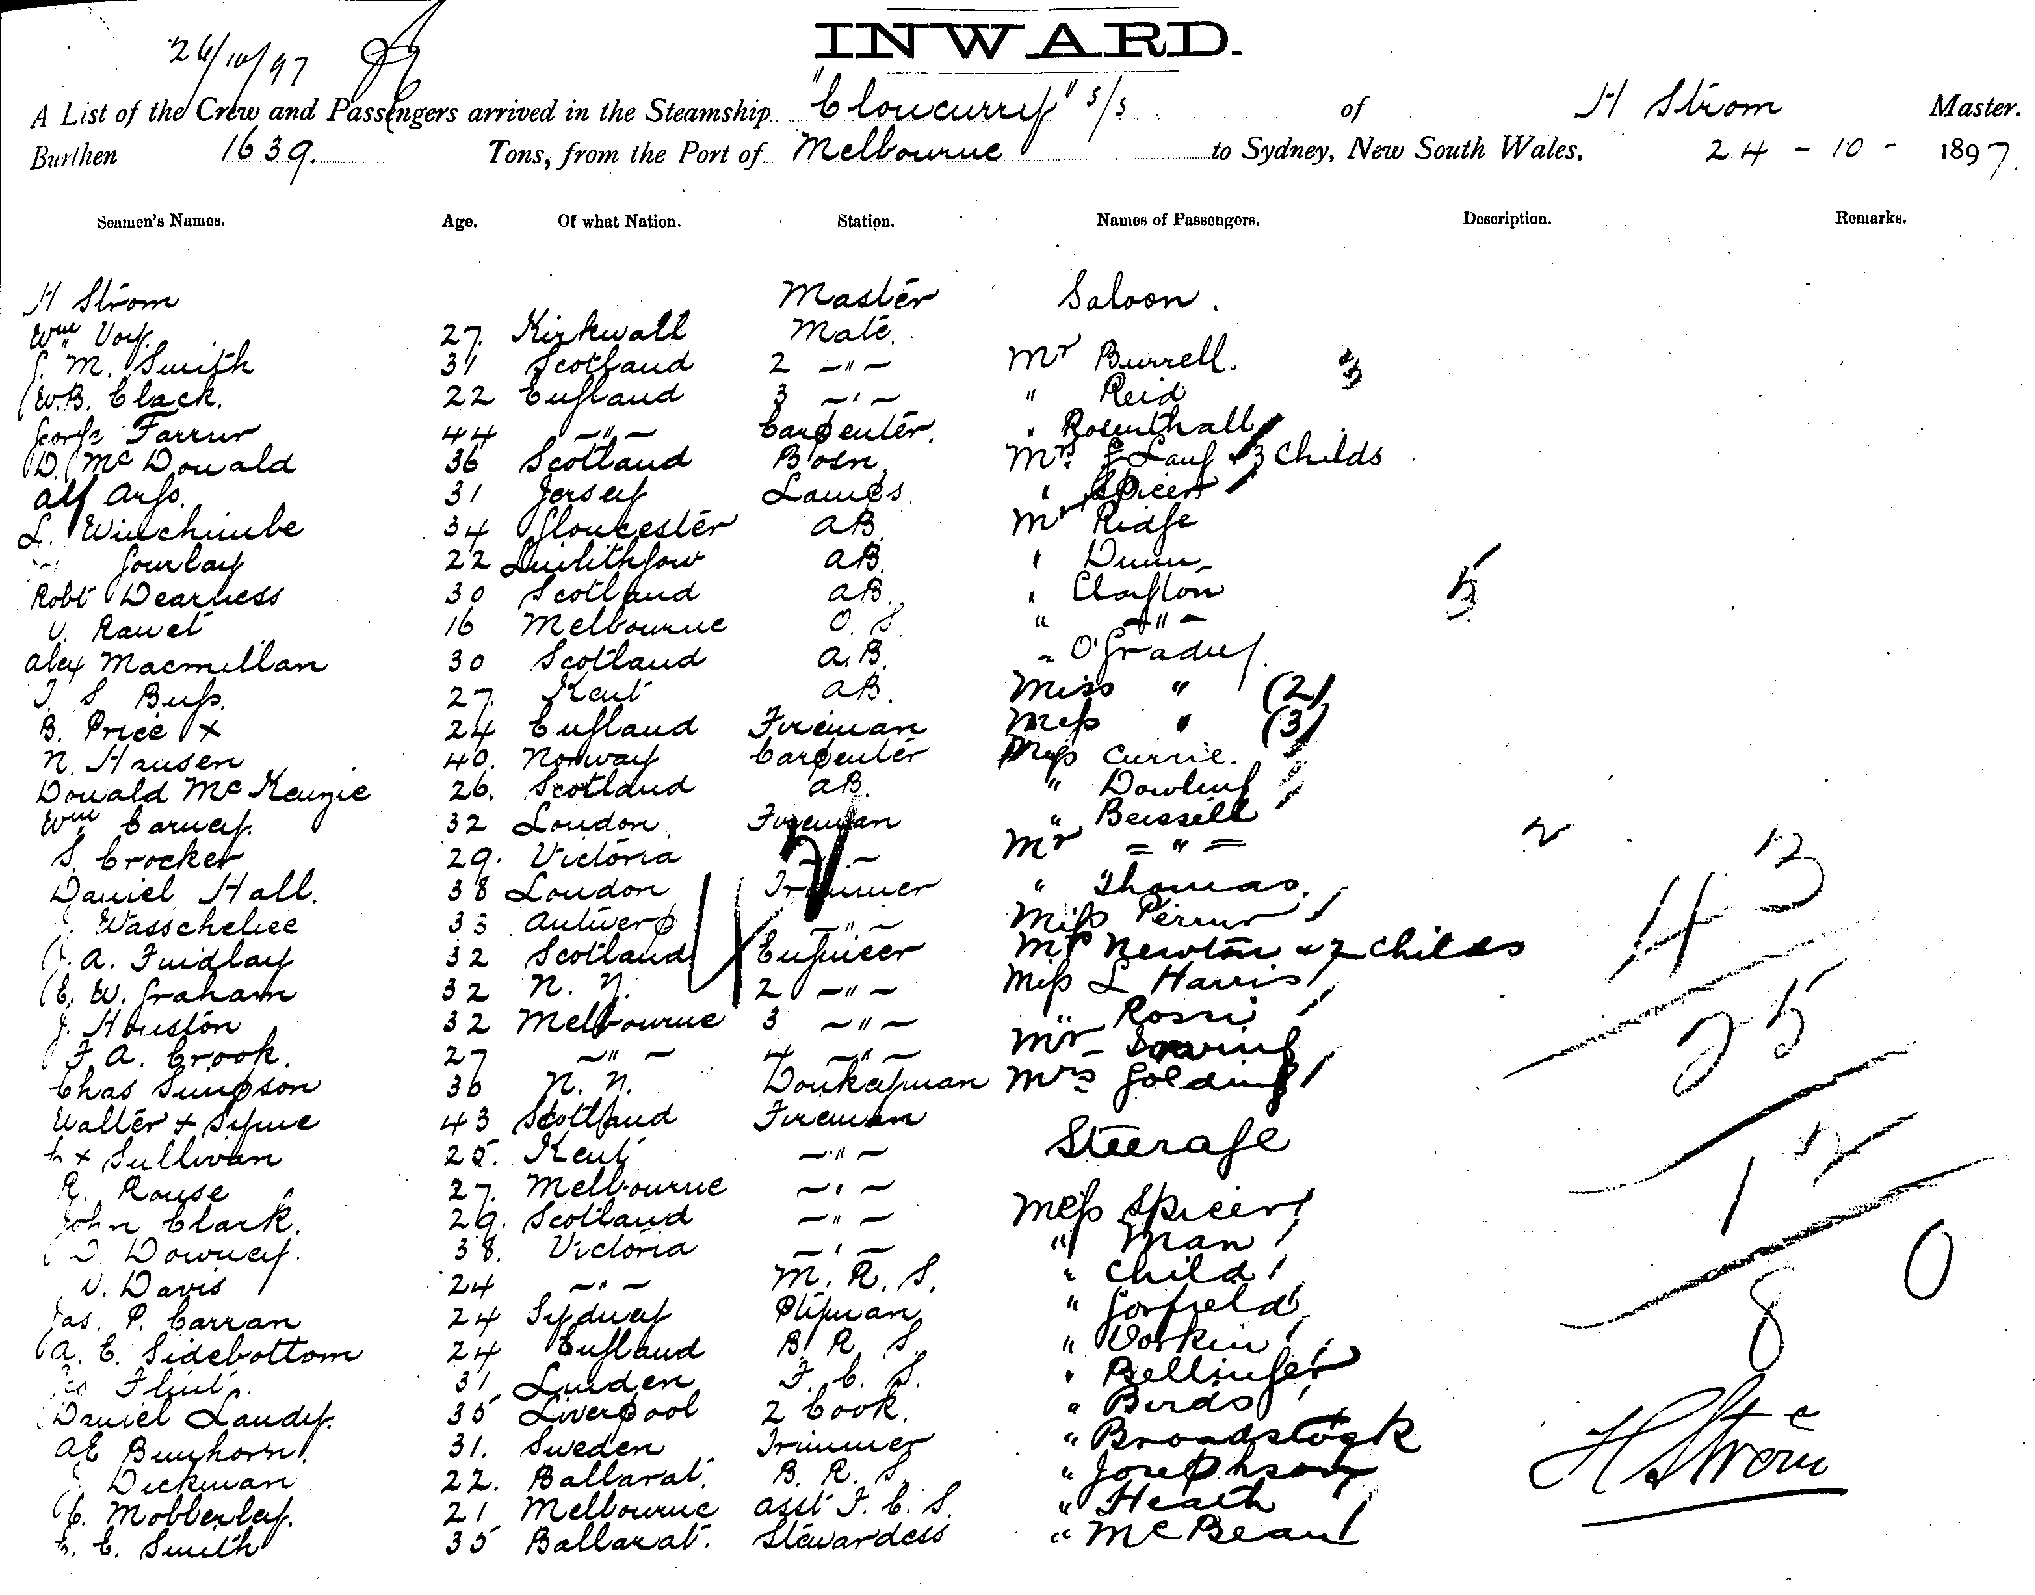 INWARD.
26/10/97
A List of the Crew and Passengers arrived in the Steamship "Cloncurry" s/s of H Strom Master.
Burthen 1639. Tons, from the Port of Melbourne to Sydney, New South Wales, 24 - 10 - 1897.
Seamen's Names. Age. Of what Nation. Station. Names of Passengers. Description. Remarks.
H Strom Master Saloon.
Wm 27. Kirkwall Mate.
J. M. Smith 31 Scotland 2 -"- Mr Burrell. 3
W.B. Clack. 22 England 3 -"- " Reid
George Farrur 44 -"- Carpenter. " Rosenthall
D. McDonald 36 Scotland Bosn Mrs Lang & 3 Childs
Alf Args. 31 Jersey Lamps " Spicer
L. Winchimbe 34 Gloucester AB Mr Ridge
Gourlay 22 Linlithgow AB. " Dunn
Robt Dearness 30 Scotland AB. " Clayton 5
Rawet 16 Melbourne O. S. " -"-
Alex Macmillan 30 Scotland A.B. " O'Grady.
S Buss. 27. Kent AB. Miss " (2)
B. Price x 24 England Fireman Mess " (3)
N. Hansen 40. Norway Carpenter Mess Currie.
Donald McKenzie 26. Scotland AB. " Dowling
Wm Carney. 32 London Fireman " Beissell
S. Crocker 29. Victoria -"- Mr = " = 2
Daniel Hall. 38 London Trimmer " Thomas.
J. Wasscheliee 33 Antwerp -"- Miss Perrur
A. Findlay 32 Scotland Engineer Mrs Newton & 2 Childs
W. Graham 32 N. Y. 2 -"- Miss L Harris
J. Houston 32 Melbourne 3 -"- " Rossi
F. A. Crook. 27 -"- 4 -"- Mr
Chas Simpson 36 N. N. Donkeyman Mrs Golding
Walter x Syme 43 Scotland Fireman
x Sullivan 25. Kent -"- Steerage
R. Rouse 27. Melbourne -"-
John Clark. 29. Scotland -"- Mess Spicer
Downey. 38. Victoria -"- " Man
Davis 24 -"- M. R. S. " Child
Jas. P. Carran 24 Sydney Ptyman " Gorfield
A. E. Sidebottom 24 England B R S " Workin
Flint. 31 Linden F. C. S. " Bellinger
Daniel Landy. 35 Liverpool 2 Cook. " Birds
AE Bunhorn. 31. Sweden Trimmer " Broadstock
J. Dickman 22. Ballarat. B. R. S " Josephson
C. Mobberley. 21 Melbourne Asst F. C. S. " Heath
C. C. Smith 35 Ballarat. Stewardess " McBean
43
25
12
8 0
H Strom